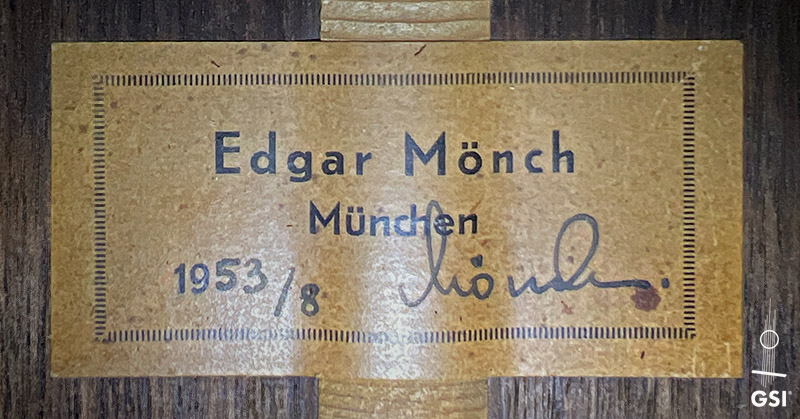 Edgar Mönch
München
1953/8 Mönch.
GSI